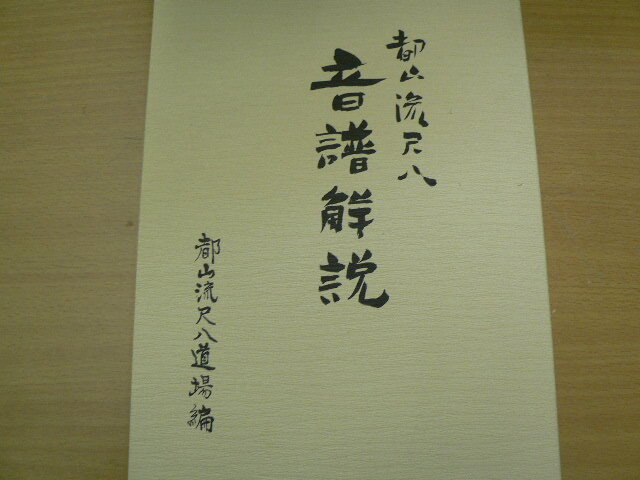 都山流尺八
音譜解説
都山流尺八道場編